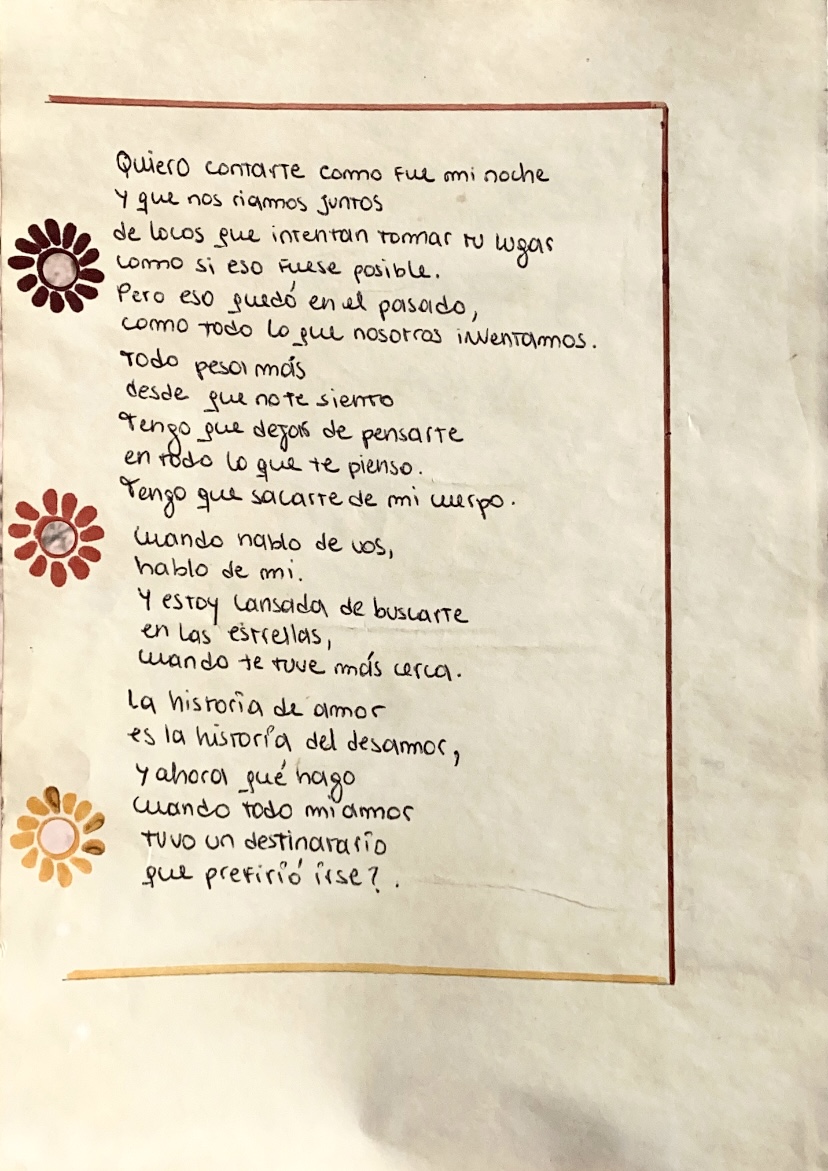 Quiero contarte como fue mi noche
y que nos riamos juntos
de locos que intentan tomar tu lugar
como si eso fuese posible.
Pero eso quedó en el pasado,
como todo lo que nosotros inventamos.
Todo pesa más
desde que no te siento
Tengo que dejar de pensarte
en todo lo que te pienso.
Tengo que sacarte de mi cuerpo.
Cuando hablo de vos,
hablo de mi.
Y estoy cansada de buscarte
en las estrellas,
cuando te tuve más cerca.
La historia de amor
es la historia del desamor,
y ahora qué hago
cuando todo mi amor
tuvo un destinarario
que prefirió irse?.